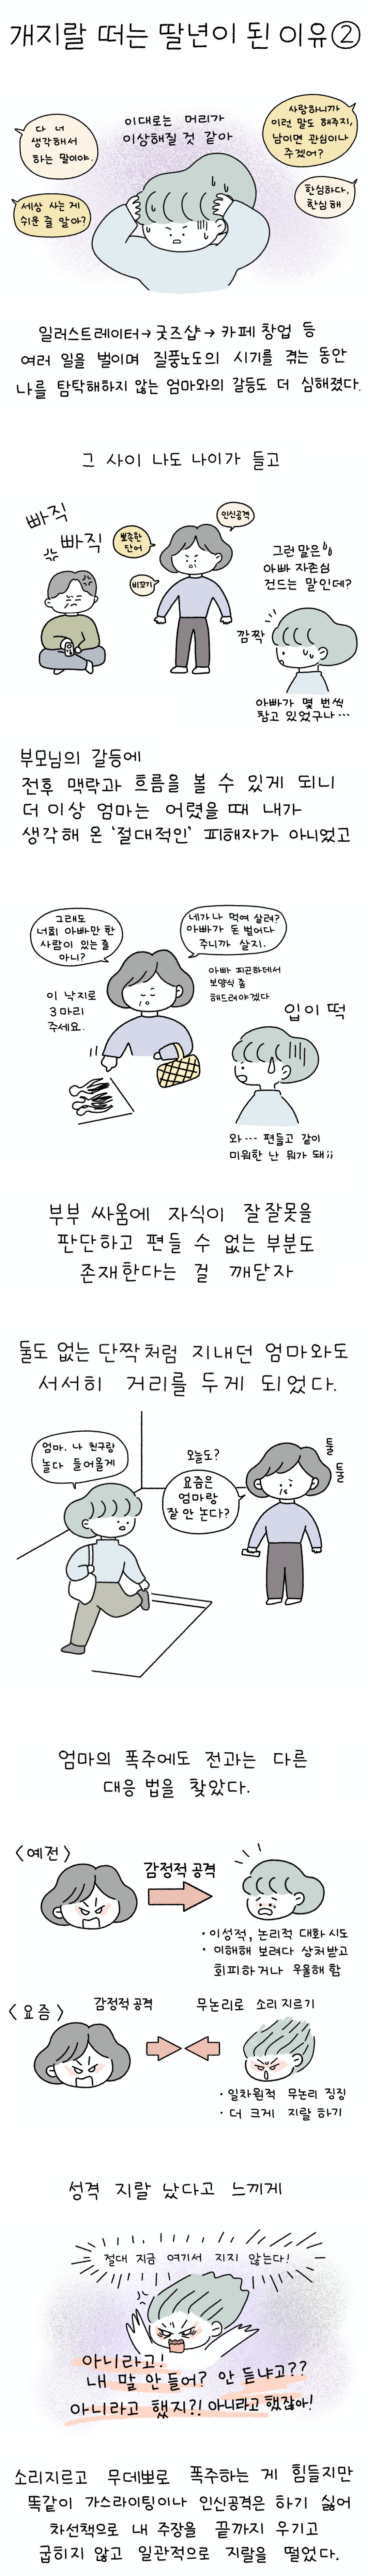 개지랄 떠는 딸년이 된 이유②
다 너
생각해서
하는 말이야.
이대로는 머리가
이상해질 것 같아
사랑하니까
이런 말도 해주지,
남이면 관심이나
주겠어?
세상 사는 게
쉬운 줄 알아?
한심하다,
한심해
일러스트레이터→굿즈샵→카페 창업 등
여러 일을 벌이며 질풍노도의 시기를 겪는 동안
나를 탐탁해하지 않는 엄마와의 갈등도 더 심해졌다.
그 사이 나도 나이가 들고
빠직
빠직
뾰족한
단어
인신공격
비꼬기
그런 말은
아빠 자존심
건드는 말인데?
깜짝
아빠가 몇 번씩
참고 있었구나…
부모님의 갈등에
전후 맥락과 흐름을 볼 수 있게 되니
더 이상 엄마는 어렸을 때 내가
생각해 온 '절대적인' 피해자가 아니었고
그래도
너희 아빠만 한
사람이 있는 줄
아니?
네가 나 먹여 살려?
아빠가 돈 벌어다
주니까 살지.
이 낙지로
3마리
주세요.
아빠 피곤하데서
보양식 좀
해드려야겠다.
입이 떡
와… 편들고 같이
미워한 난 뭐가 돼;;
부부 싸움에 자식이 잘잘못을
판단하고 편들 수 없는 부분도
존재한다는 걸 깨닫자
둘도 없는 단짝처럼 지내던 엄마와도
서서히 거리를 두게 되었다.
엄마. 나 친구랑
놀다 들어올게
오늘도?
요즘은
엄마랑
잘 안 논다?
툴
툴
엄마의 폭주에도 전과는 다른
대응 법을 찾았다.
〈예전〉
감정적 공격
· 이성적, 논리적 대화 시도
· 이해해 보려다 상처받고
회피하거나 우울해 함
〈요즘〉
감정적 공격
무논리로 소리 지르기
· 일차원적 무논리 징징
· 더 크게 지랄 하기
성격 지랄 났다고 느끼게
절대 지금 여기서 지지 않는다!
아니라고!
내 말 안 들어? 안 듣냐고??
아니라고 했지?! 아니라고 했잖아!
소리지르고 무데뽀로 폭주하는 게 힘들지만
똑같이 가스라이팅이나 인신공격은 하기 싫어
차선책으로 내 주장을 끝까지 우기고
굽히지 않고 일관적으로 지랄을 떨었다.